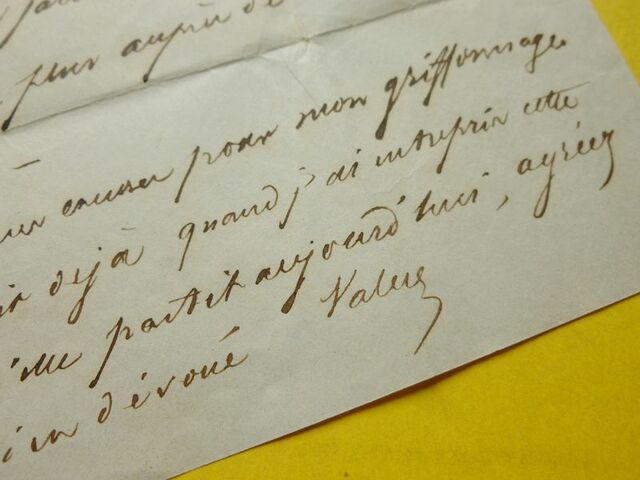 plus auprès de
excuser pour mon griffonnage
déjà quand j'ai entrepris cette
elle partit aujourd'hui, agréez
bien dévoué